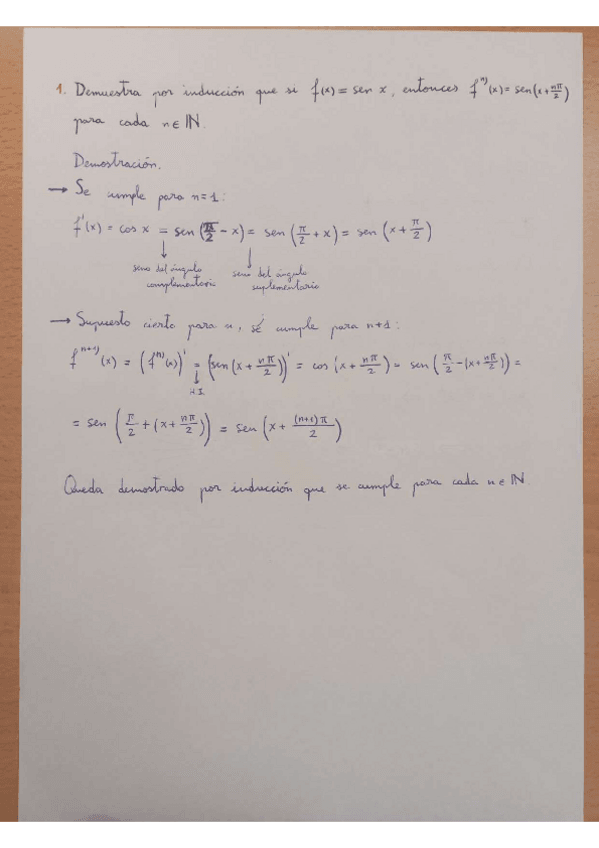 1. Demuestra por inducción que si f(x) = sen x, entonces f^n)(x) = sen(x + nπ/2)
para cada n ∈ ℕ.
Demostración.
→ Se cumple para n=1:
f'(x) = cos x = sen(π/2 - x) = sen(π/2 + x) = sen(x + π/2)
↓ seno del ángulo complementario
↓ seno del ángulo suplementario
→ Supuesto cierto para n, sé cumple para n+1:
f^n+1)(x) = (f^n)(x))' = (sen(x + nπ/2))' = cos(x + nπ/2) = sen(π/2 - (x + nπ/2)) =
↓ H.I.
= sen(π/2 + (x + nπ/2)) = sen(x + (n+1)π/2)
Queda demostrado por inducción que se cumple para cada n ∈ ℕ.